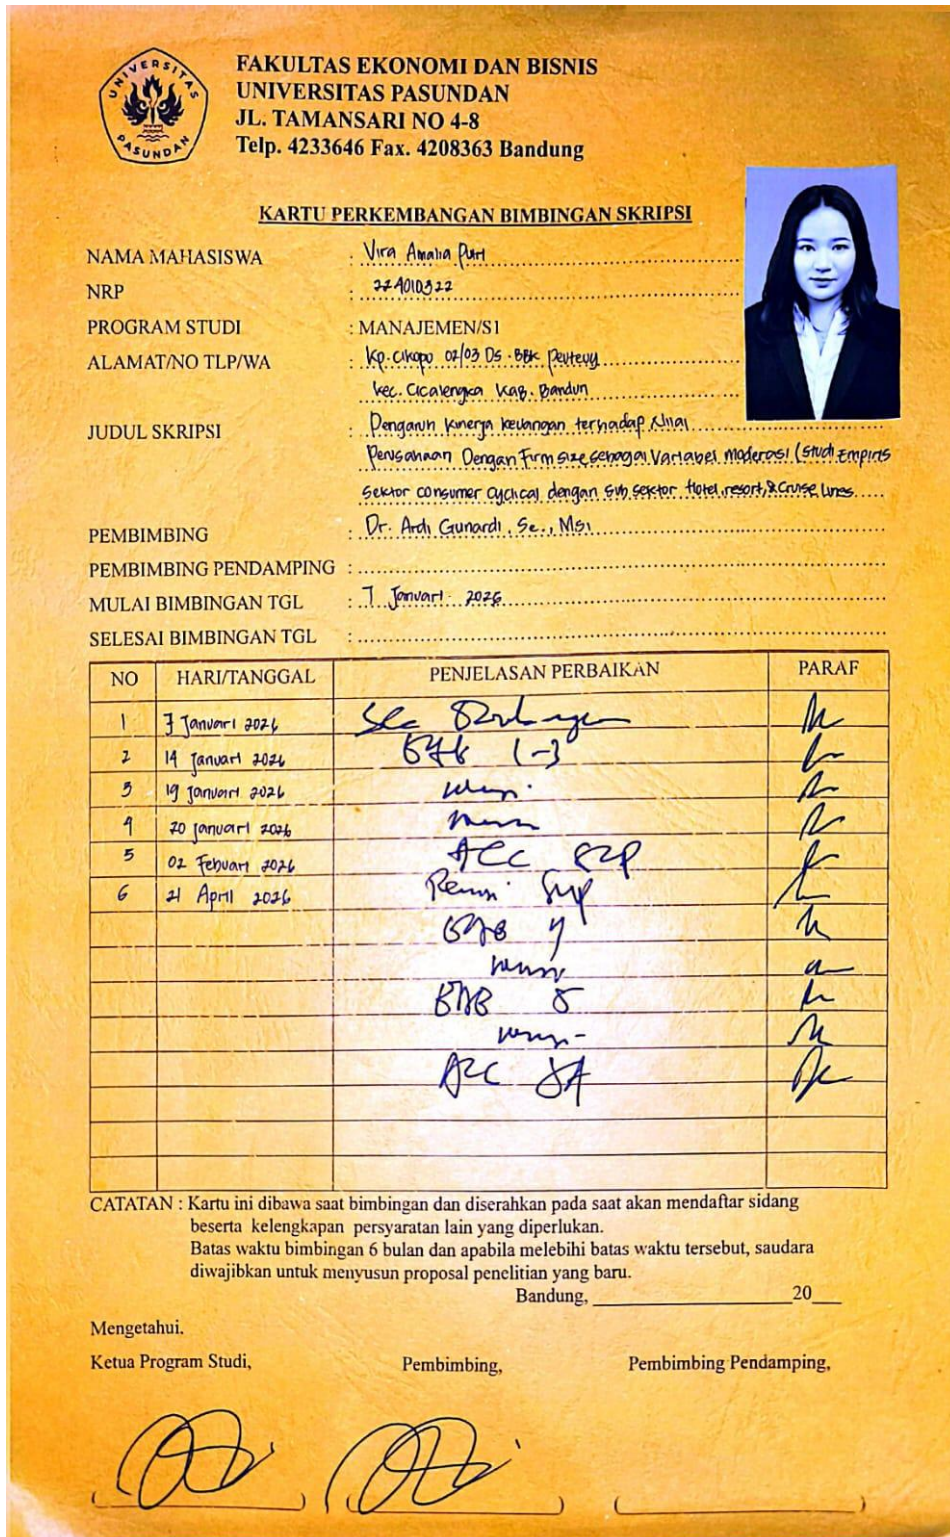 UNIVERSITAS
PASUNDAN
FAKULTAS EKONOMI DAN BISNIS
UNIVERSITAS PASUNDAN
JL. TAMANSARI NO 4-8
Telp. 4233646 Fax. 4208363 Bandung
KARTU PERKEMBANGAN BIMBINGAN SKRIPSI
NAMA MAHASISWA : Vira Amalia Putri
NRP : 224010322
PROGRAM STUDI : MANAJEMEN/S1
ALAMAT/NO TLP/WA : Kp. Cikopo 02/03 Ds. BBK Peuteuy
Kec. Cicalengka Kab. Bandun
JUDUL SKRIPSI : Pengaruh Kinerja keuangan terhadap Nilai
Perusahaan Dengan Firm size sebagai Variabel Moderasi (Studi Empiris
Sektor consumer cyclical dengan sub sektor Hotel, resort, & Cruise Lines
PEMBIMBING : Dr. Ardi Gunardi, Se., Msi
PEMBIMBING PENDAMPING :
MULAI BIMBINGAN TGL : 7 Januari 2026
SELESAI BIMBINGAN TGL :
NO HARI/TANGGAL PENJELASAN PERBAIKAN PARAF
1 7 Januari 2026
2 14 Januari 2026 BAB 1-3
3 19 Januari 2026
4 20 Januari 2026
5 02 Febuari 2026 ACC
6 21 April 2026 Revisi
BAB 4
revisi
BAB 5
revisi
ACC
CATATAN : Kartu ini dibawa saat bimbingan dan diserahkan pada saat akan mendaftar sidang
beserta kelengkapan persyaratan lain yang diperlukan.
Batas waktu bimbingan 6 bulan dan apabila melebihi batas waktu tersebut, saudara
diwajibkan untuk menyusun proposal penelitian yang baru.
Bandung, 20
Mengetahui.
Ketua Program Studi, Pembimbing, Pembimbing Pendamping,